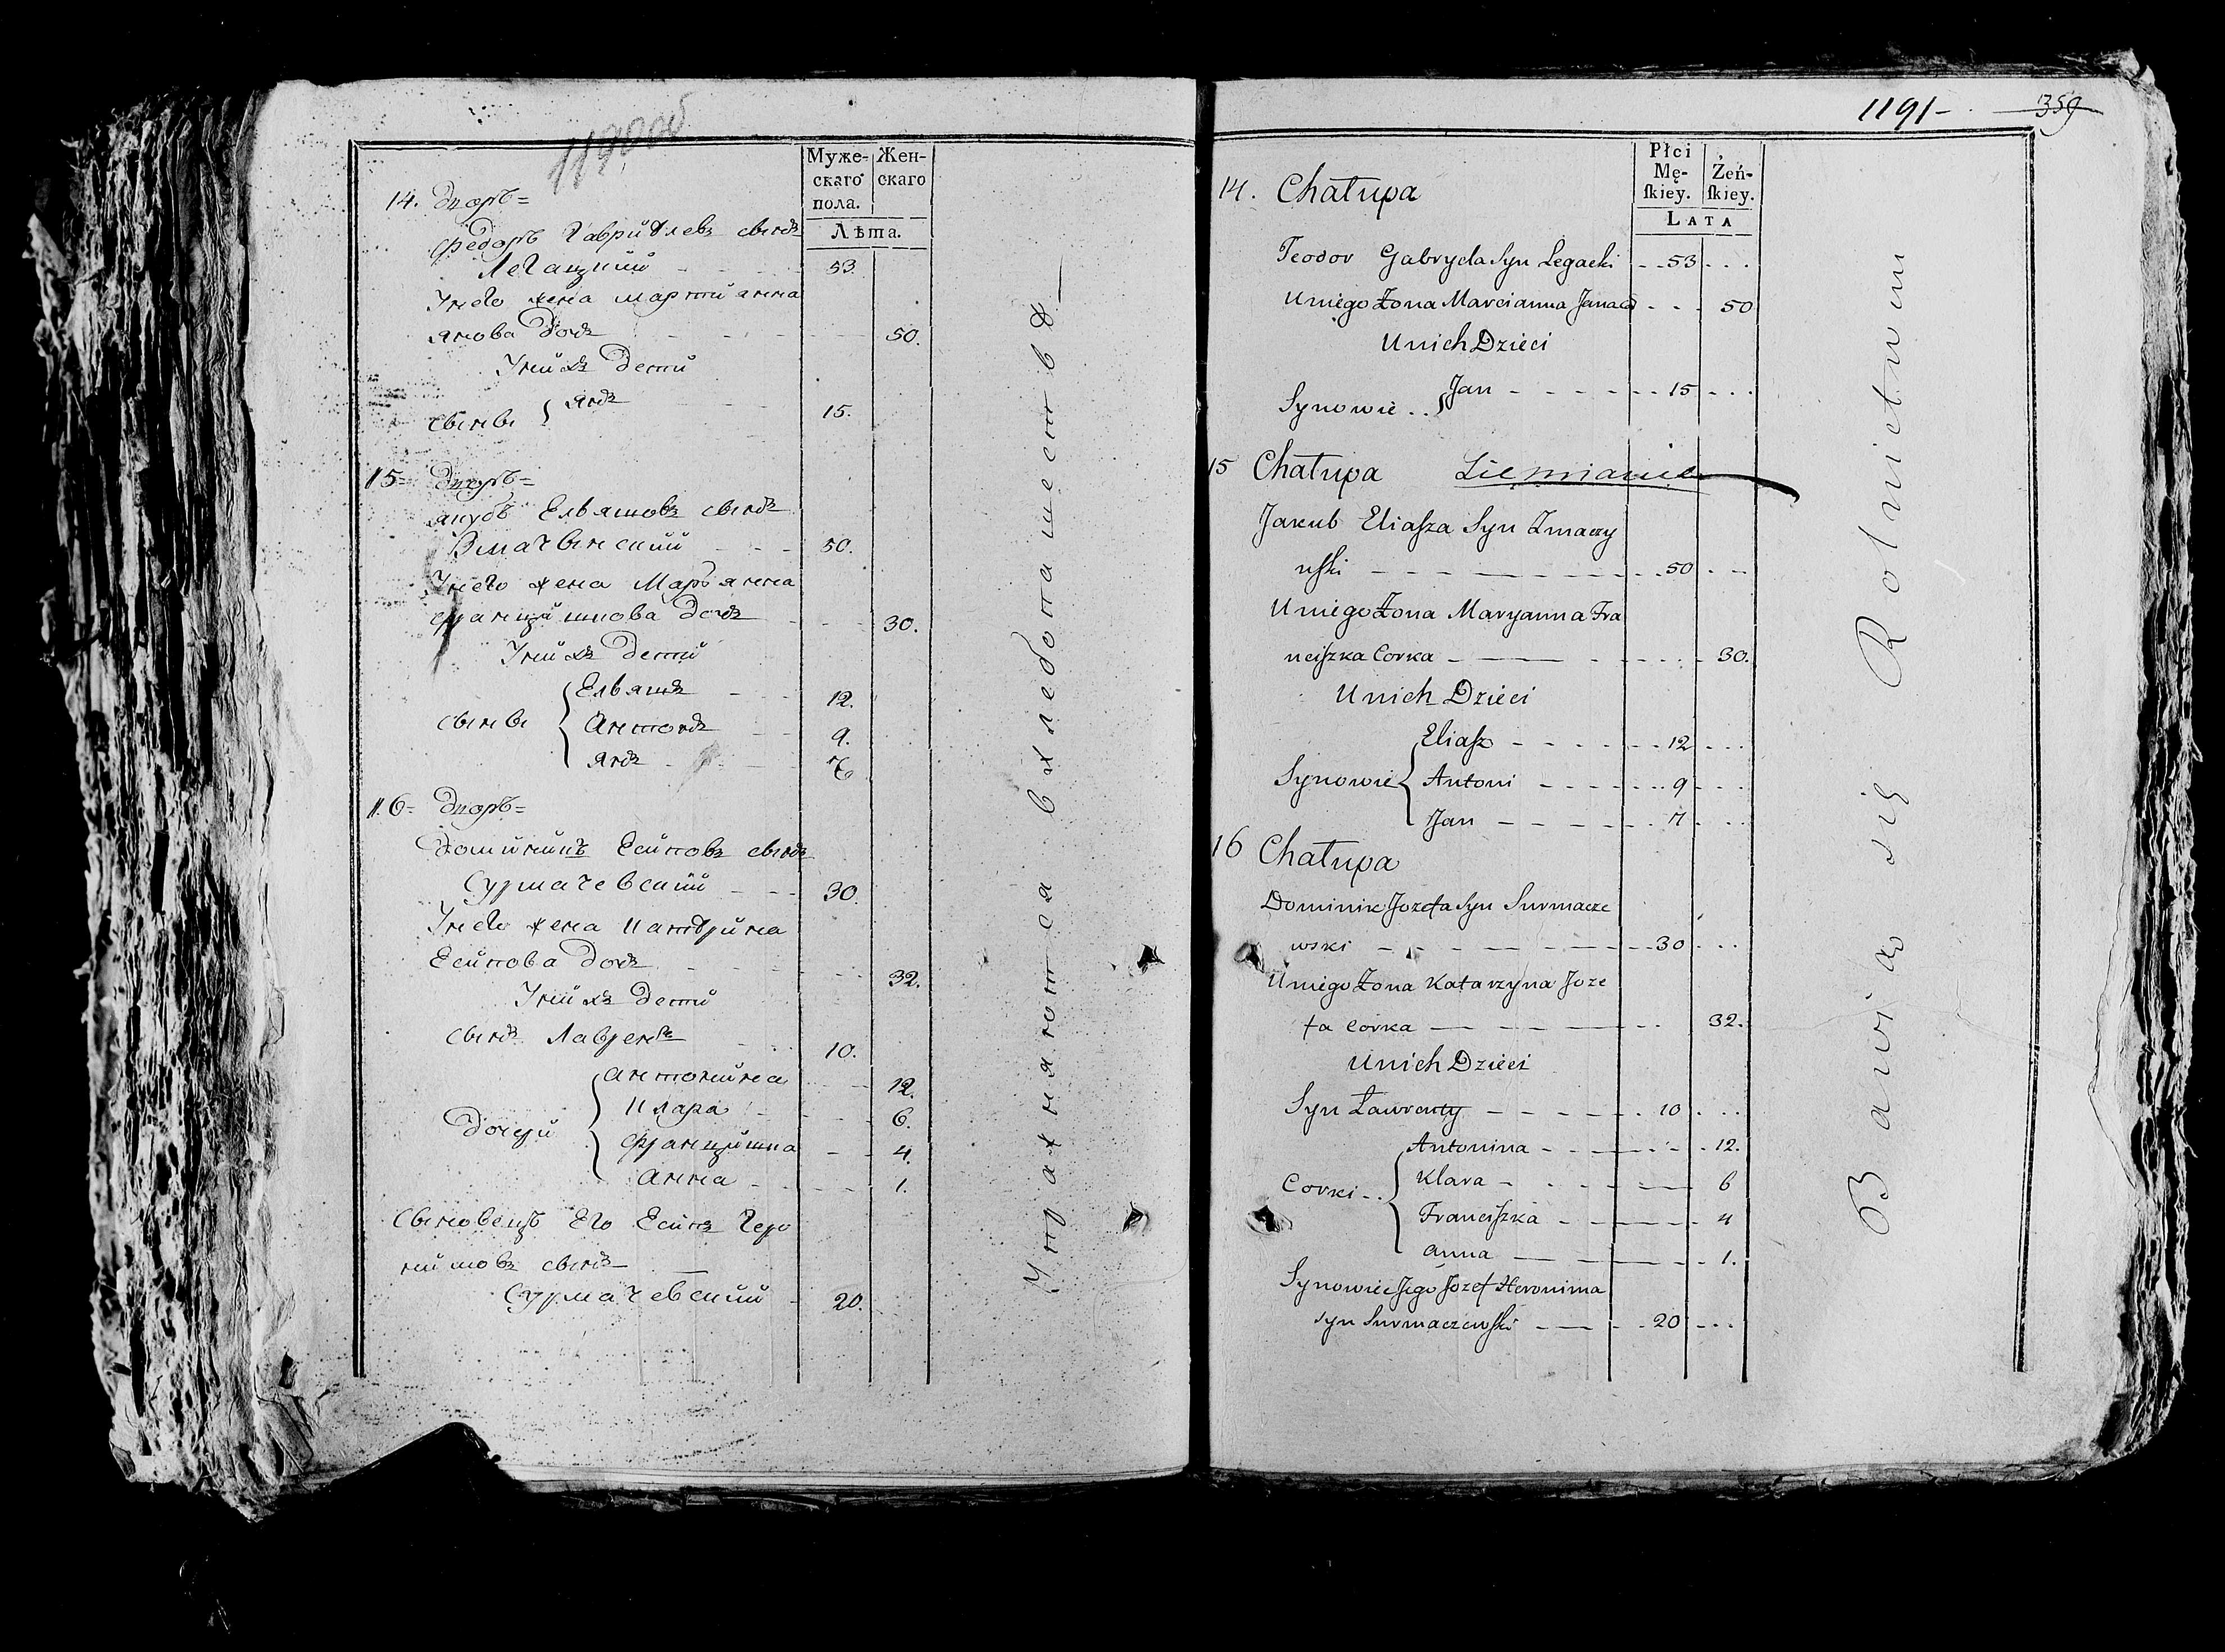 1190об
Муже-
скаго
пола.
Жен-
скаго
Лѣта.
14. Дворъ=
Федоръ Гаврилевъ сынъ
Легацкий - - - 53.
У него жена Мартиянна
Янова дочь - - - 50.
У них дети
сыны { Янъ - - - 15.
15= Дворъ=
Якубъ Ельяшовъ сынъ
Змачынский - - - 50.
У него жена Марьянна
Францишкова дочь - - - 30.
У них дети
Ельяшъ - - - 12.
сыны { Антонъ - - - 9.
Янъ - - - 7
16= Дворъ=
Доминикъ Есиповъ сынъ
Сурмачевский - - - 30.
У него жена Катерина
Есипова дочь - - - 32.
У них дети
сынъ Лавренъ - - - 10.
Антонина - - - 12.
Клара - - - 6.
Дочери { Францишка - - - 4.
Анна - - - 1.
Сыновецъ Его Есипъ Геро
нимовъ сынъ
Сурмачевский - 20.
Упажняются в хлебопашестве
1191-
359
Płci
Mę-
ſkiey.
Żeń-
ſkiey.
LATA
14. Chałupa
Teodor Gabryela Syn Legacki - - 53 - - -
U niego Żona Marcianna Jana co - - - 50
U nich Dzieci
Synowie . . { Jan - - - - - - 15 - - -
15 Chałupa Ziemianie
Jakub Eliaſza Syn Zmaczy
nſki - - - - - 50 - -
U niego Żona Maryanna Fra
nciſzka Corka - - - - 30.
U nich Dzieci
Eliaſz - - - - - - 12 - - -
Synowie { Antoni - - - - - 9 - - -
Jan - - - - - 7 - - -
16 Chałupa
Dominik Jozefa Syn Surmacze
wski - - - - - 30 - - -
U niego Żona Katarzyna Joze
fa Corka - - - - - 32.
U nich Dzieci
Syn Ławrenty - - - - - 10 - - -
Antonina - - - - - 12.
Corki . . { Klara - - - - - 6
Franciſzka - - - - - 4
Anna - - - - - 1.
Synowiec Jego Jozef Heronima
Syn Surmaczewſki - - - - 20 - - -
Bawią się Rolnictwem